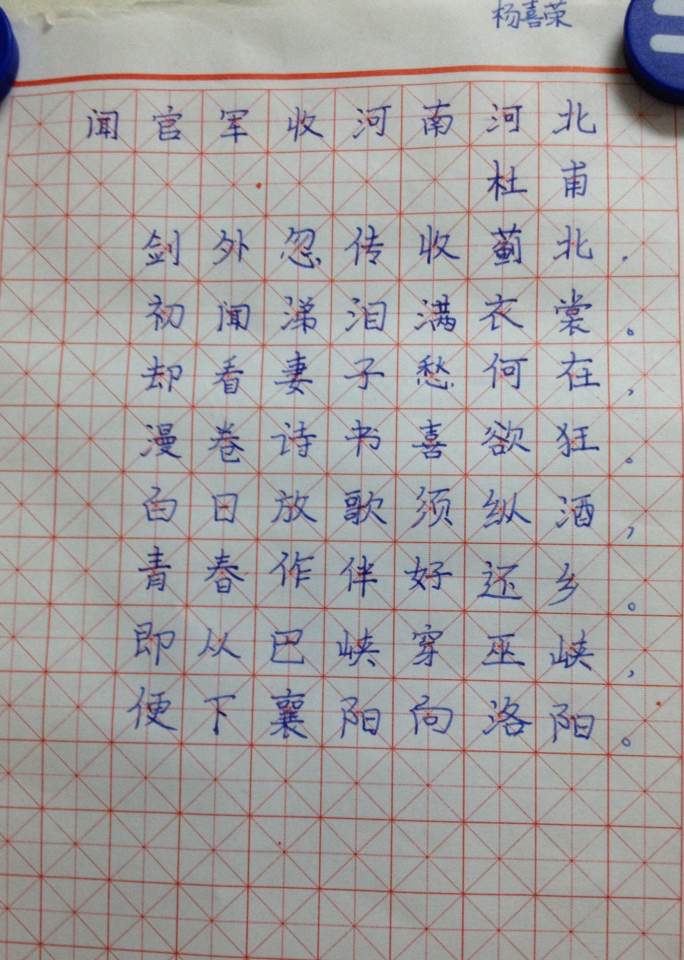 杨喜荣
闻官军收河南河北
杜甫
剑外忽传收蓟北.
初闻涕泪满衣裳。
却看妻子愁何在,
漫卷诗书喜欲狂。
白日放歌须纵酒,
青春作伴好还乡。
即从巴峡穿巫峡,
便下襄阳向洛阳。